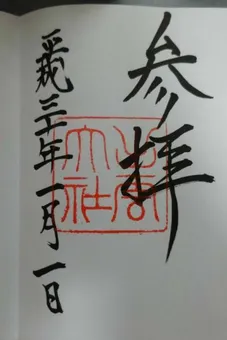 参拝
出雲
大社
平成三十一年一月一日